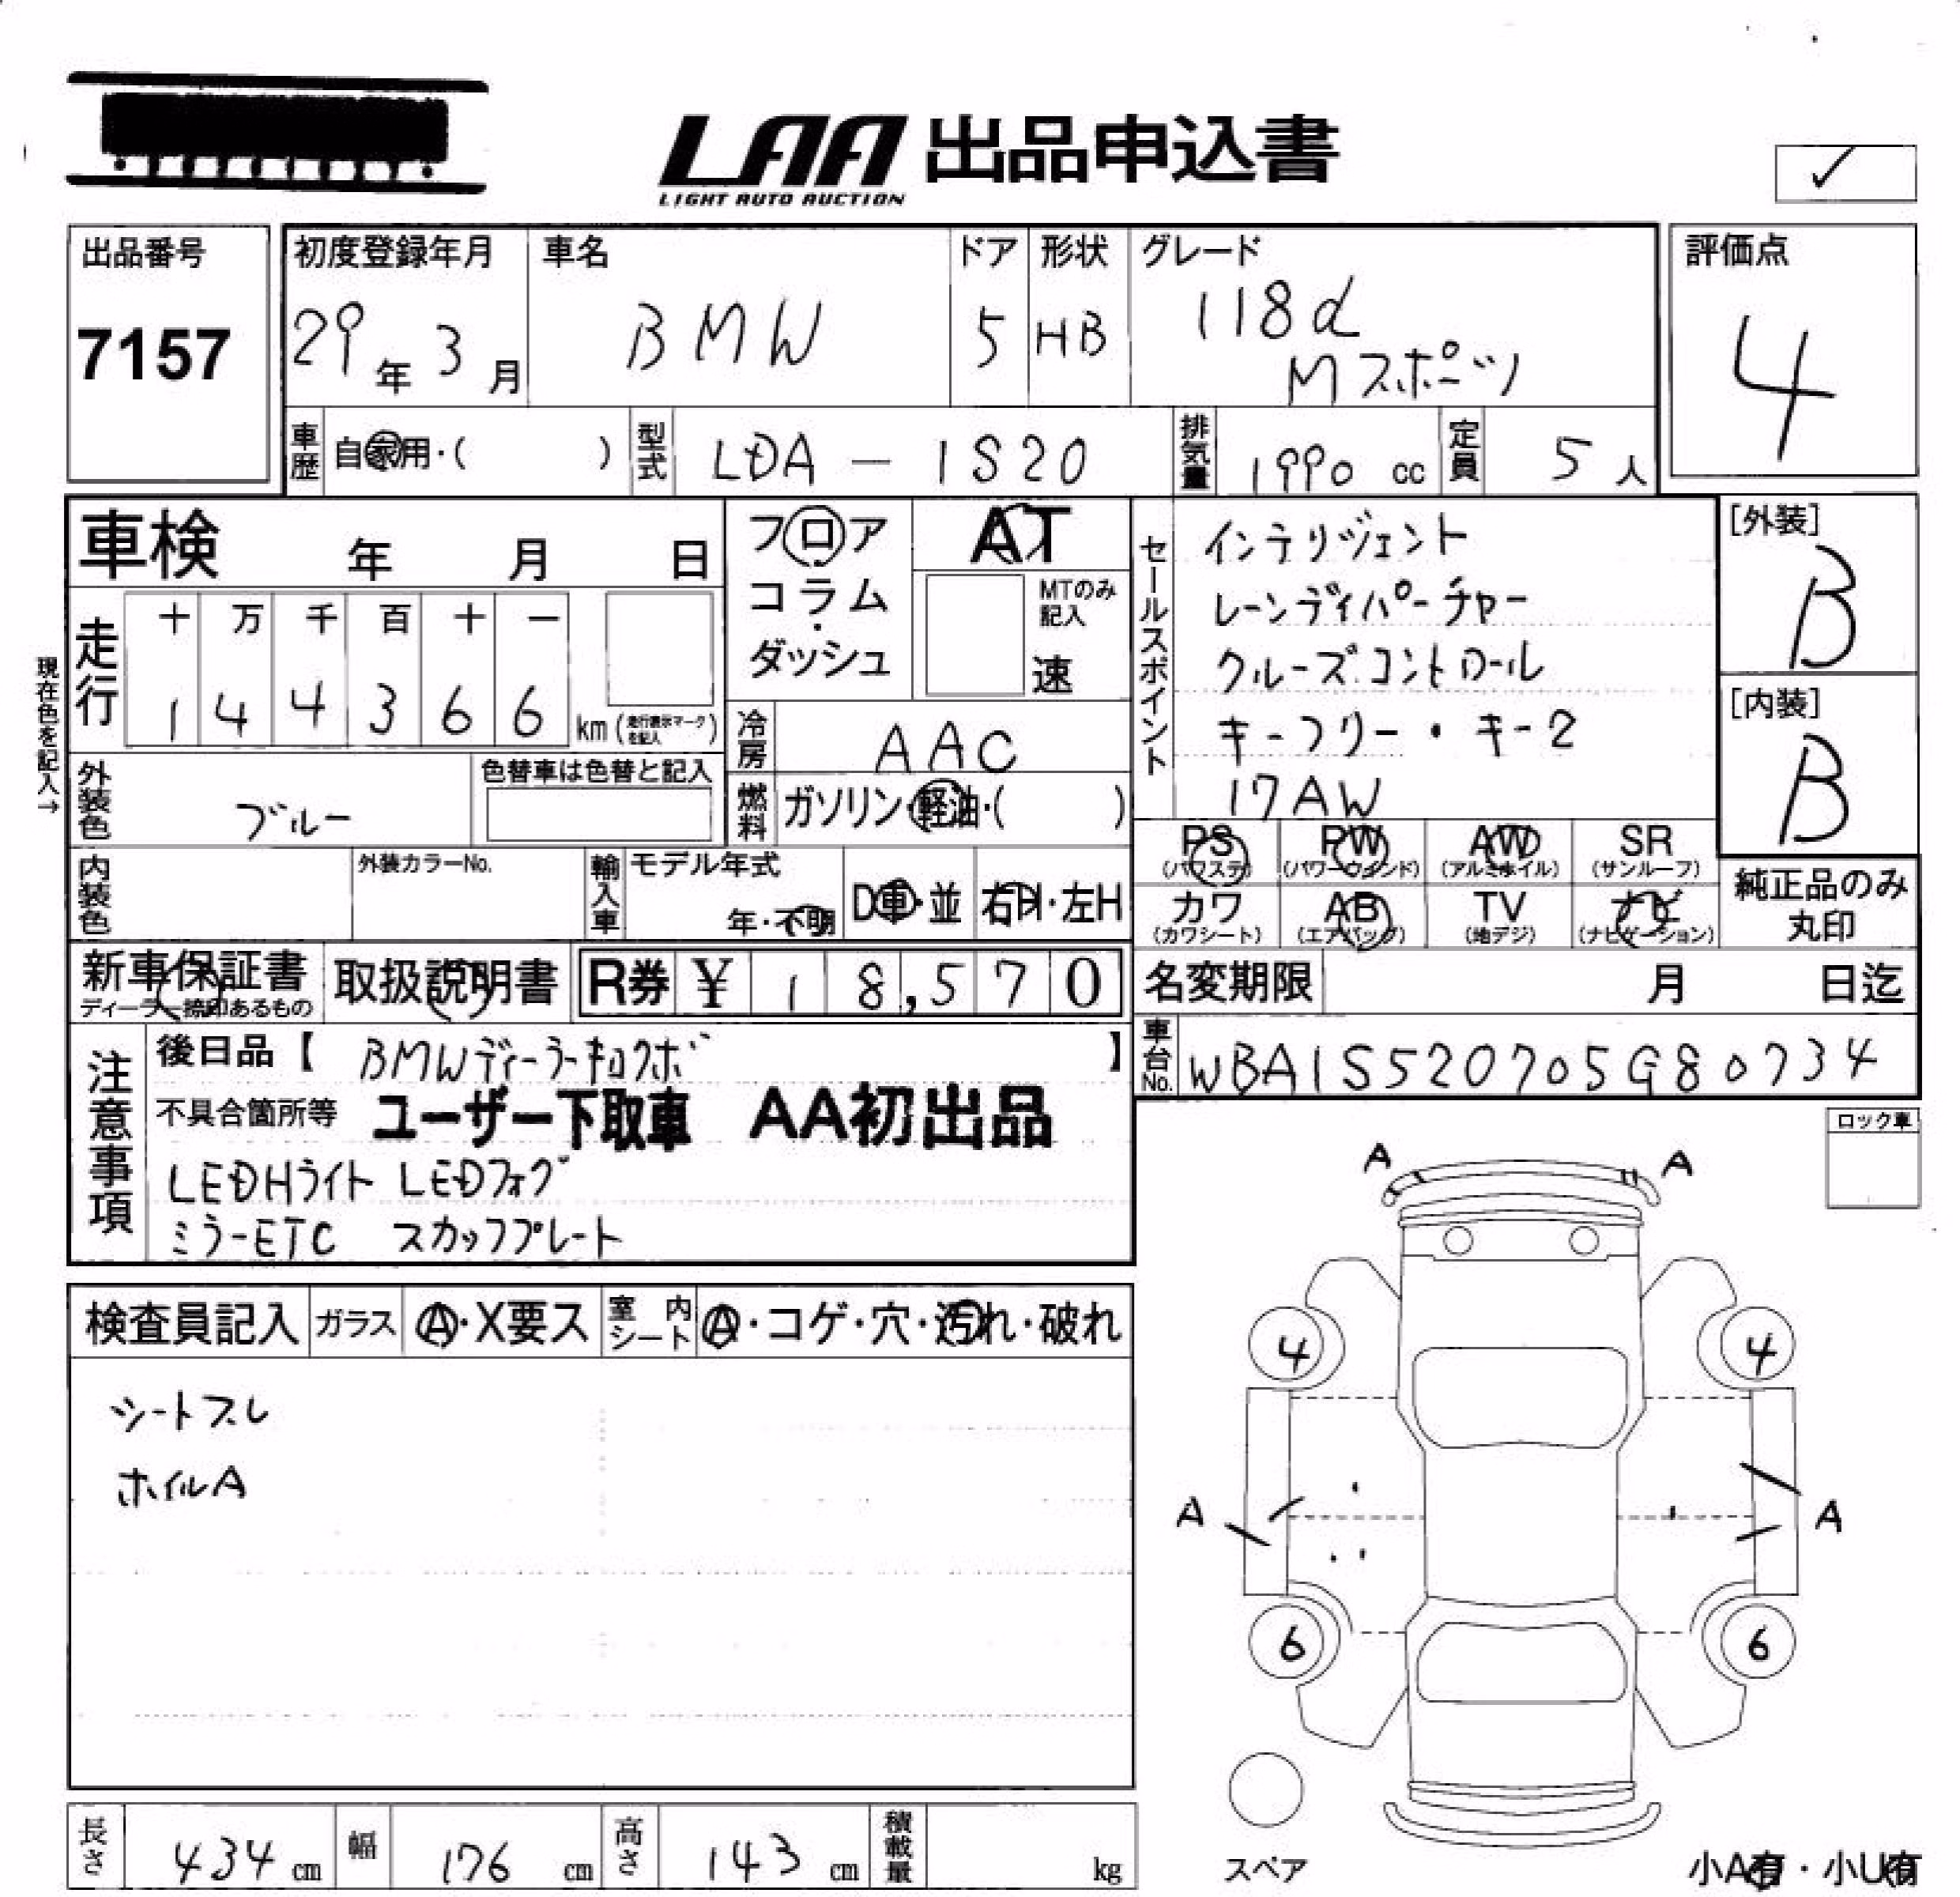 LAA 出品申込書
LIGHT AUTO AUCTION
✓
出品番号
7157
初度登録年月
29年 3月
車名
BMW
ドア
5
形状
HB
グレード
118d
Mスポーツ
評価点
4
車歴 自家用・( )
型式 LDA - 1S20
排気量 1990 cc
定員 5人
車検 年 月 日
フロア
コラム・
ダッシュ
AT
MTのみ
記入
速
走行
十 万 千 百 十 一
1 4 4 3 6 6 km (走行表示マークを記入)
現在色を記入→
冷房 AAC
外装色 ブルー
色替車は色替と記入
燃料 ガソリン・軽油・( )
内装色
外装カラーNo.
輸入車
モデル年式
年・不明
D車・並
右H・左H
セールスポイント
インテリジェント
レーンディパーチャー
クルーズコントロール
キーフリー・キー2
17AW
[外装]
B
[内装]
B
PS
(パワステ)
PW
(パワーウインド)
AW
(アルミホイル)
SR
(サンルーフ)
カワ
(カワシート)
AB
(エアバッグ)
TV
(地デジ)
ナビ
(ナビゲーション)
純正品のみ
丸印
新車保証書
ディーラー捺印あるもの
取扱説明書
R券 ¥ 18,570
名変期限 月 日迄
車台No. WBA1S520705G80734
注意事項
後日品【 BMWディーラーキロクボ 】
不具合箇所等 ユーザー下取車 AA初出品
LEDHライト LEDフォグ
ミラーETC スカッフプレート
ロック車
検査員記入
ガラス A・X要ス
室内シート A・コゲ・穴・汚れ・破れ
シートスレ
ホイルA
A A
4 4
A A
6 6
スペア
小A有・小U有
長さ 434 cm
幅 176 cm
高さ 143 cm
積載量 kg